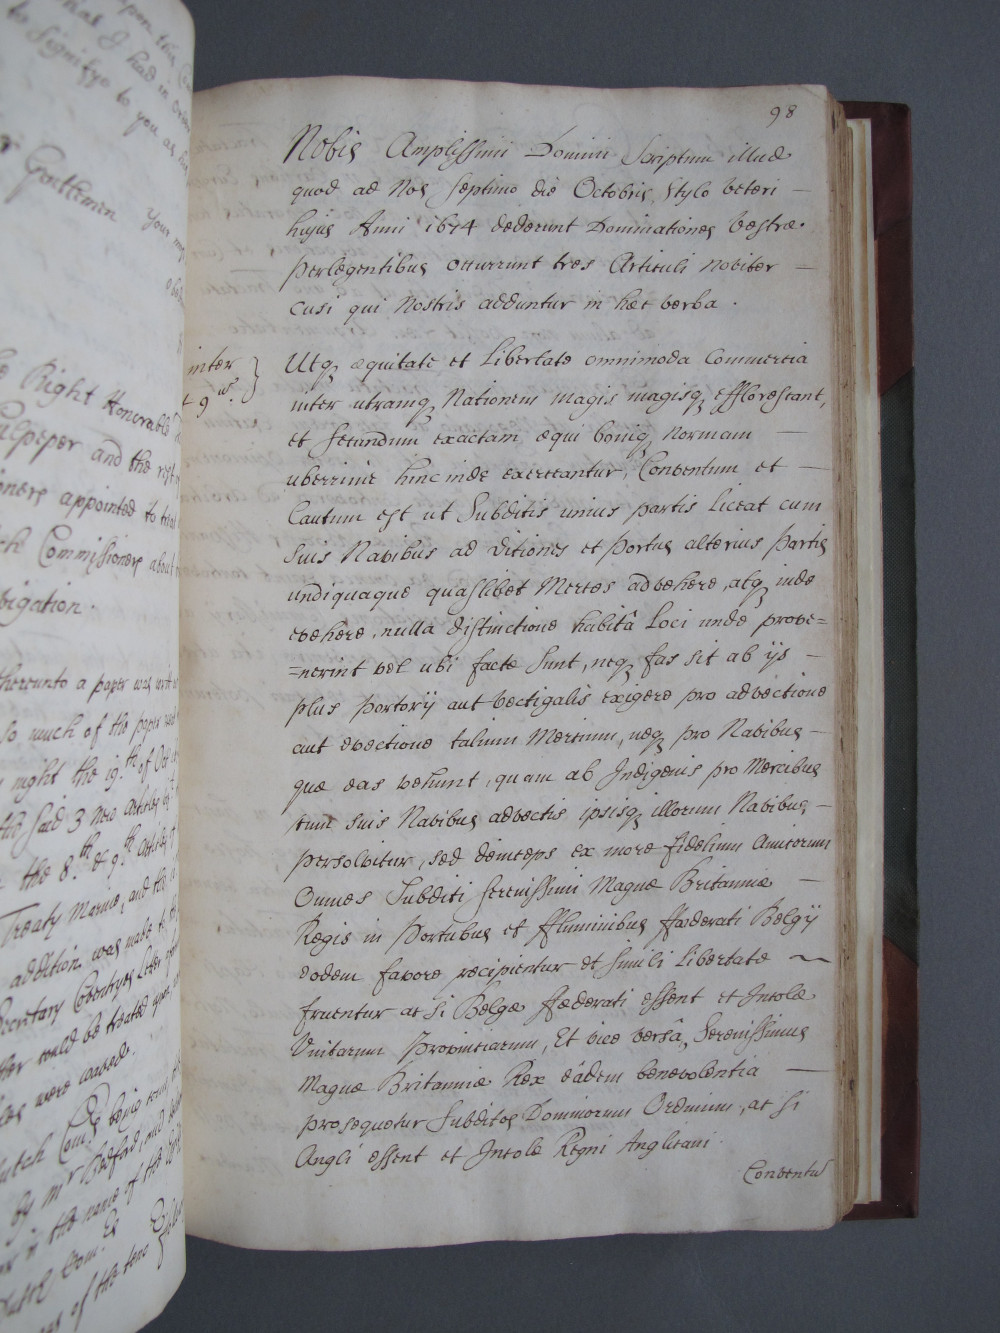 upon this
what I had in
to signifye to you as
Gentlemen your
Right Honorable
Culpeper and the
appointed to
Commissioners about
Navigation.
thereunto a paper was
so much of the paper
night the 19.th of Oct
the said 3 new Articles
the 8.th & 9.th Articles
Treaty Marine, and the
addition was made to the
Secretary Coventryes Letter
could be treated upon,
were waved.
Dutch Com.rs being
by Mr Bedford, and
in the name of the
Dutch Com.rs
of the teno.r
98
Nobis Amplissimi Domini Scriptum illud
quod ad Nos septimo die Octobris, Stylo veteri —
hujus Anni 1674 dederunt Dominationes Vestræ.
perlegentibus occurrunt tres Articuli noviter —
cusi qui Nostris adduntur in hæc verba.
inter
9us. }
Utq, æquitate et Libertate omnimoda Commercia
inter utramq, Nationem magis magisq, efflorescant,
et secundum exactam æqui boniq, Normam —
uberrime hinc inde exerceantur, Conventum et —
Cautum est ut Subditis unius partis liceat cum
suis Navibus ad ditiones et Portus alterius Partis
undiquaque quaslibet Merces advehere, atq, inde
evehere, nulla distinctione habitâ Loci unde prove=
=nerint vel ubi factæ sunt, neq, fas sit ab ijs —
plus Portorij aut Vectigalis exigere pro advectione
aut evectione talium Mercium, neq, pro Navibus —
quæ eas vehunt, quam ab Indigenis pro Mercibus
tum suis Navibus advectis ipsisq, illorum Navibus, —
persolvitur, sed deinceps ex more fidelium Amicorum
Omnes Subditi Serenissimi Magnæ Britanniæ —
Regis in Portubus et ffluminibus ffœderati Belgij
eodem favore recipientur et simili Libertate ~
fruentur ac si Belgæ ffœderati essent et Incolæ
Unitarum Provinciarum, Et vice versâ, Serenissimus
Magnæ Britanniæ Rex eâdem benevolentia —
prosequetur Subditos Dominorum Ordinum, ac si
Angli essent et Incolæ Regni Anglicani.
Conventu